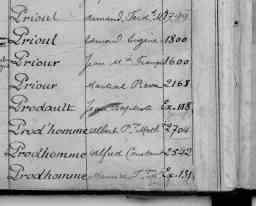 Prioul Armand, Ferd. M. 1799
Prioul Edmond Eugène 1800
Priour Jean M. François 1600
Priour Martial Pierre 2168
Prodault Jean Baptiste Ex. 188
Prodhomme Albert P. Math. 2704
Prodhomme Alfred Constant 2542
Prodhomme Maurice F. Ex. 134